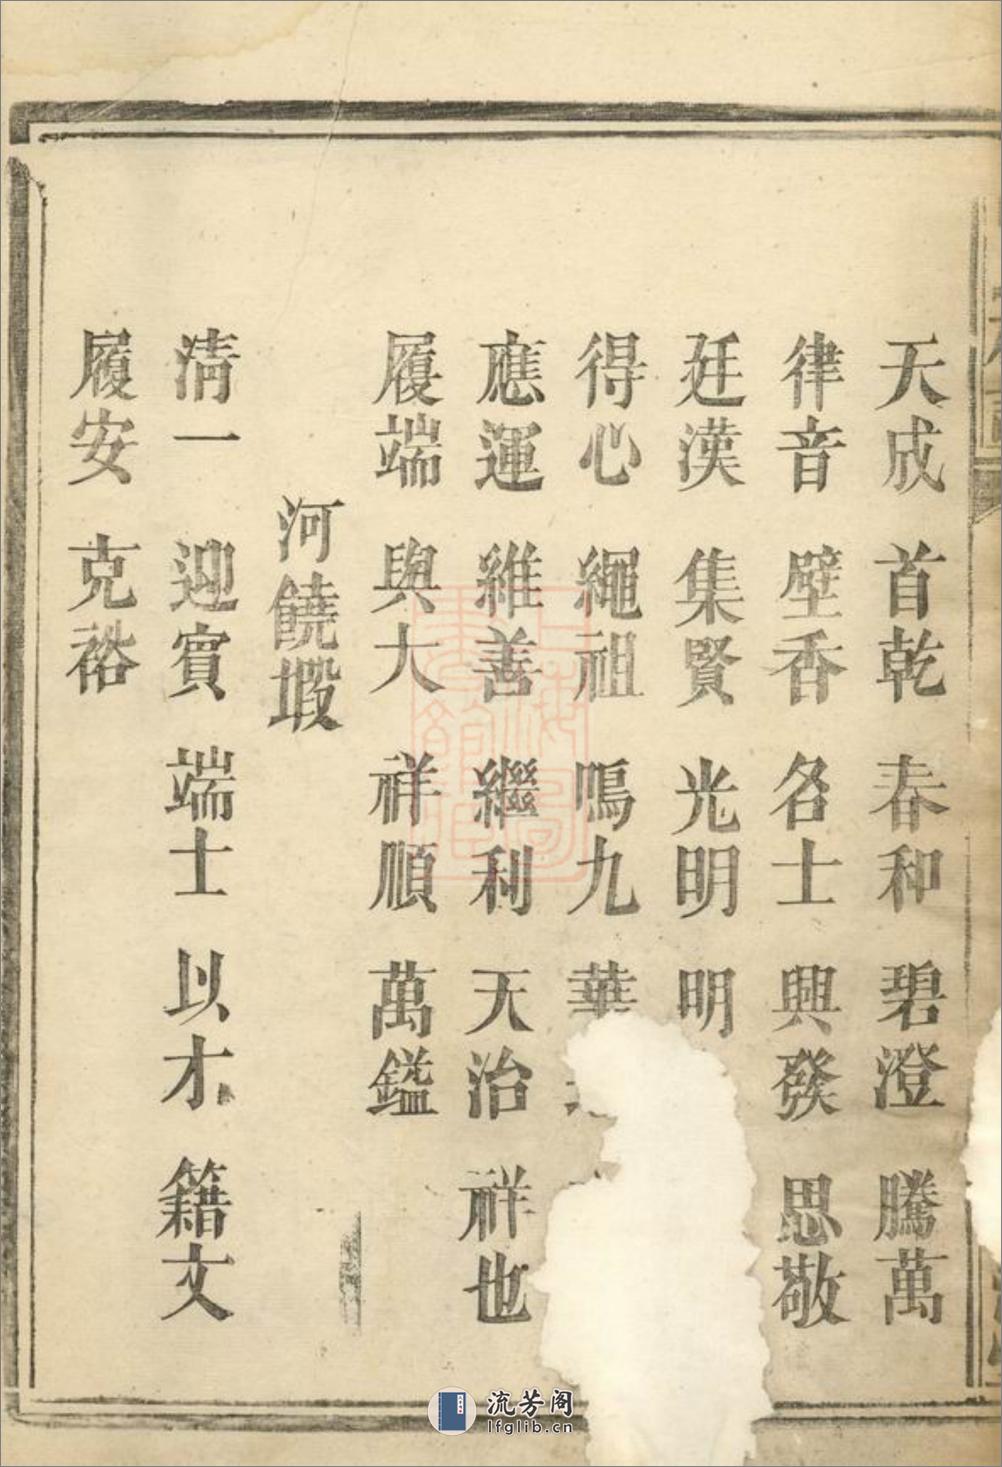 天成　首乾　春和　碧澄　騰萬
律音　壁香　各士　興發　思敬
廷漢　集賢　光明　明
得心　繩祖　鳴九　華
應運　維善　繼利　天治　祥也
履端　與大　祥順　萬鎰
河饒塅
清一　迎賓　端士　以才　籍文
履安　克裕
流芳阁
lfglib.cn